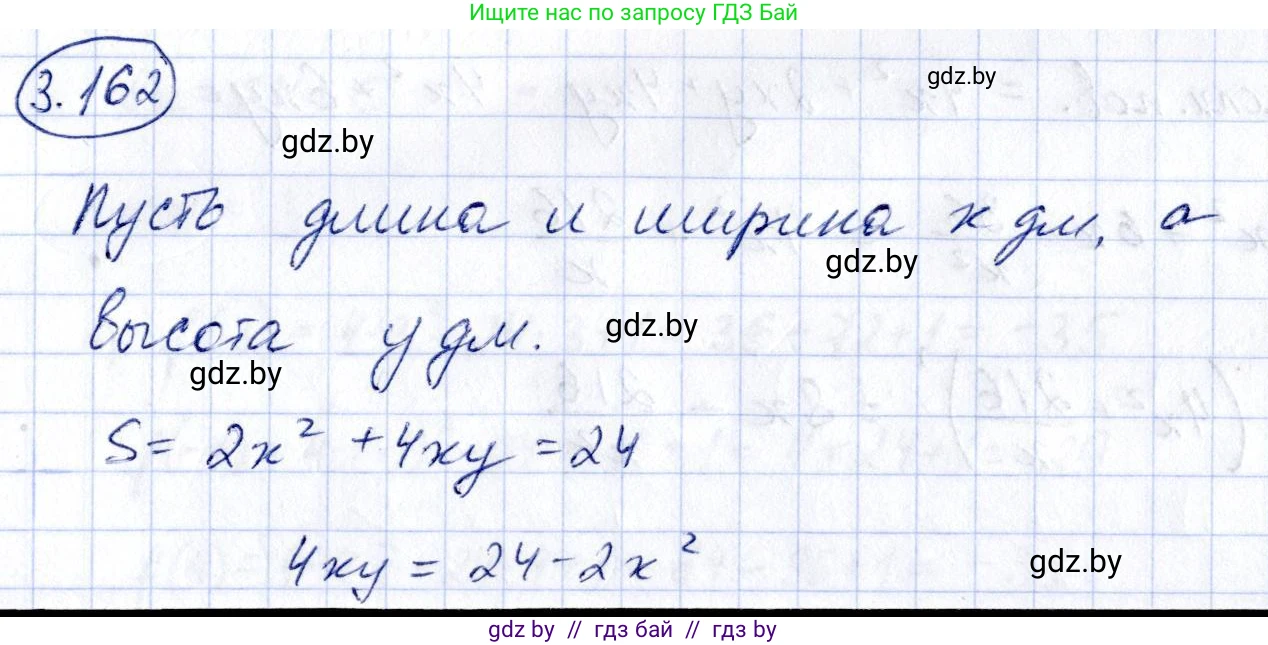 Ищите нас по запросу ГДЗ Бай
3.162
gdz.by
gdz.by
Пусть длина и ширина x дм, а
gdz.by
высота y дм.
gdz.by
gdz.by
S = 2x² + 4xy = 24
4xy = 24 - 2x²
gdz.by
gdz by // гдз бай // гдз by